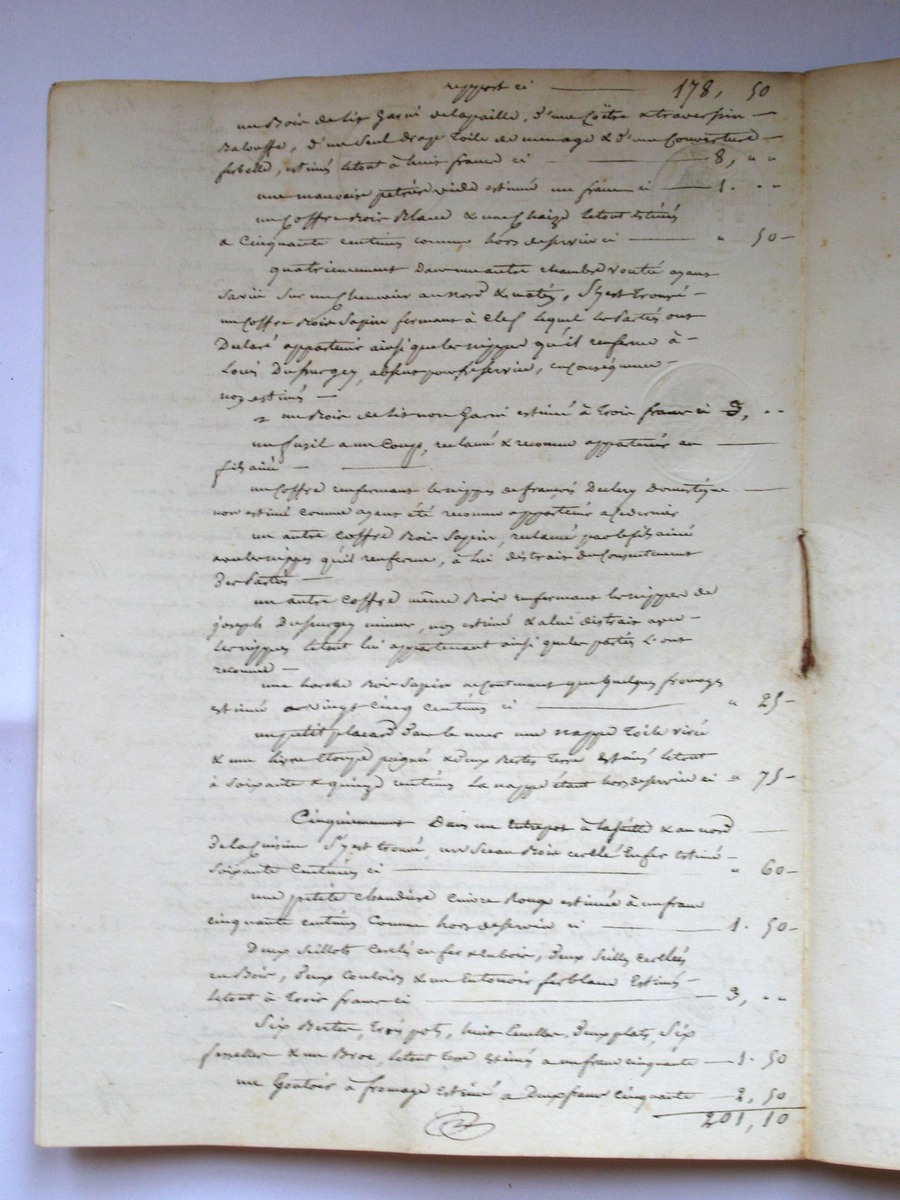 report ci — 178, 50
un Bois de lit Garni de la paille, d'une Coëtre & traversin —
Balouffe, d'un Seul drap Toile de menage & d'une Couverture —
estimés letout à huit francs ci — 8, " "
une mauvaise petrière vide estimée un franc ci — 1. " "
un Coffre Bois Blanc & une Chaize letout estimés
a Cinquante centimes comme hors de service ci — " 50 —
quatriemement Dans une autre chambre voutée ayant
Sur un au nord & matin, S'y est trouvé —
un Coffre Bois Sapin fermant à clef lequel les Parties ont
Declaré appartenir ainsi que les nippes qu'il renferme à —
Louis Dufurgey, absent pour le service, en Conséquence —
non estimés —
un Bois de lit non Garni estimé à Trois francs ci 3, " "
un fusil a un Coup, reclamé & reconnu appartenir au —
fils ainé —
un Coffre renfermant les nippes de françois Domestique —
non estimé comme ayant été reconnu appartenir a ce dernier
un autre coffre Bois Sapin, reclamé par le fils ainé
avec les nippes qu'il renferme, à Lui distrait du Consentement
des Parties —
un autre Coffre même Bois renfermant les nippes de
joseph Dufurgey mineur, non estimé & a lui distrait avec —
les nippes letout lui appartenant ainsi que les parties l'ont
reconnu —
une Bois Sapin ne Contenant que quelques fromages
estimée a vingt cinq centimes ci — " 25 —
un petit placard dans le mur une nappe Toile
& une livre Etoupe peignée & deux Bertes Terre estimés letout
à Soixante & quinze centimes la nappe étant hors de service ci " 75 —
Cinquiemement Dans un Entrepot à & au nord —
de la Cuisine S'y est trouvé un Sceau Bois cerclé En fer estimé —
Soixante Centimes ci — " 60 —
une petite chaudière cuivre Rouge estimée à un franc
cinquante centimes Comme hors de service ci — 1. 50 —
Deux Seillots Cerclés en fer & en bois, deux Seilles Cerclées
en Bois, deux Couloirs & un Entonoir ferblanc Estimés —
letout à Trois francs ci — 3, " "
Six Bertes, Trois pots, huit deux plats, Six
& un Broc, letout Terre Estimés a un franc cinquante — 1. 50
un Goutoir à fromage estimé a Deux francs cinquante — 2, 50
201, 10